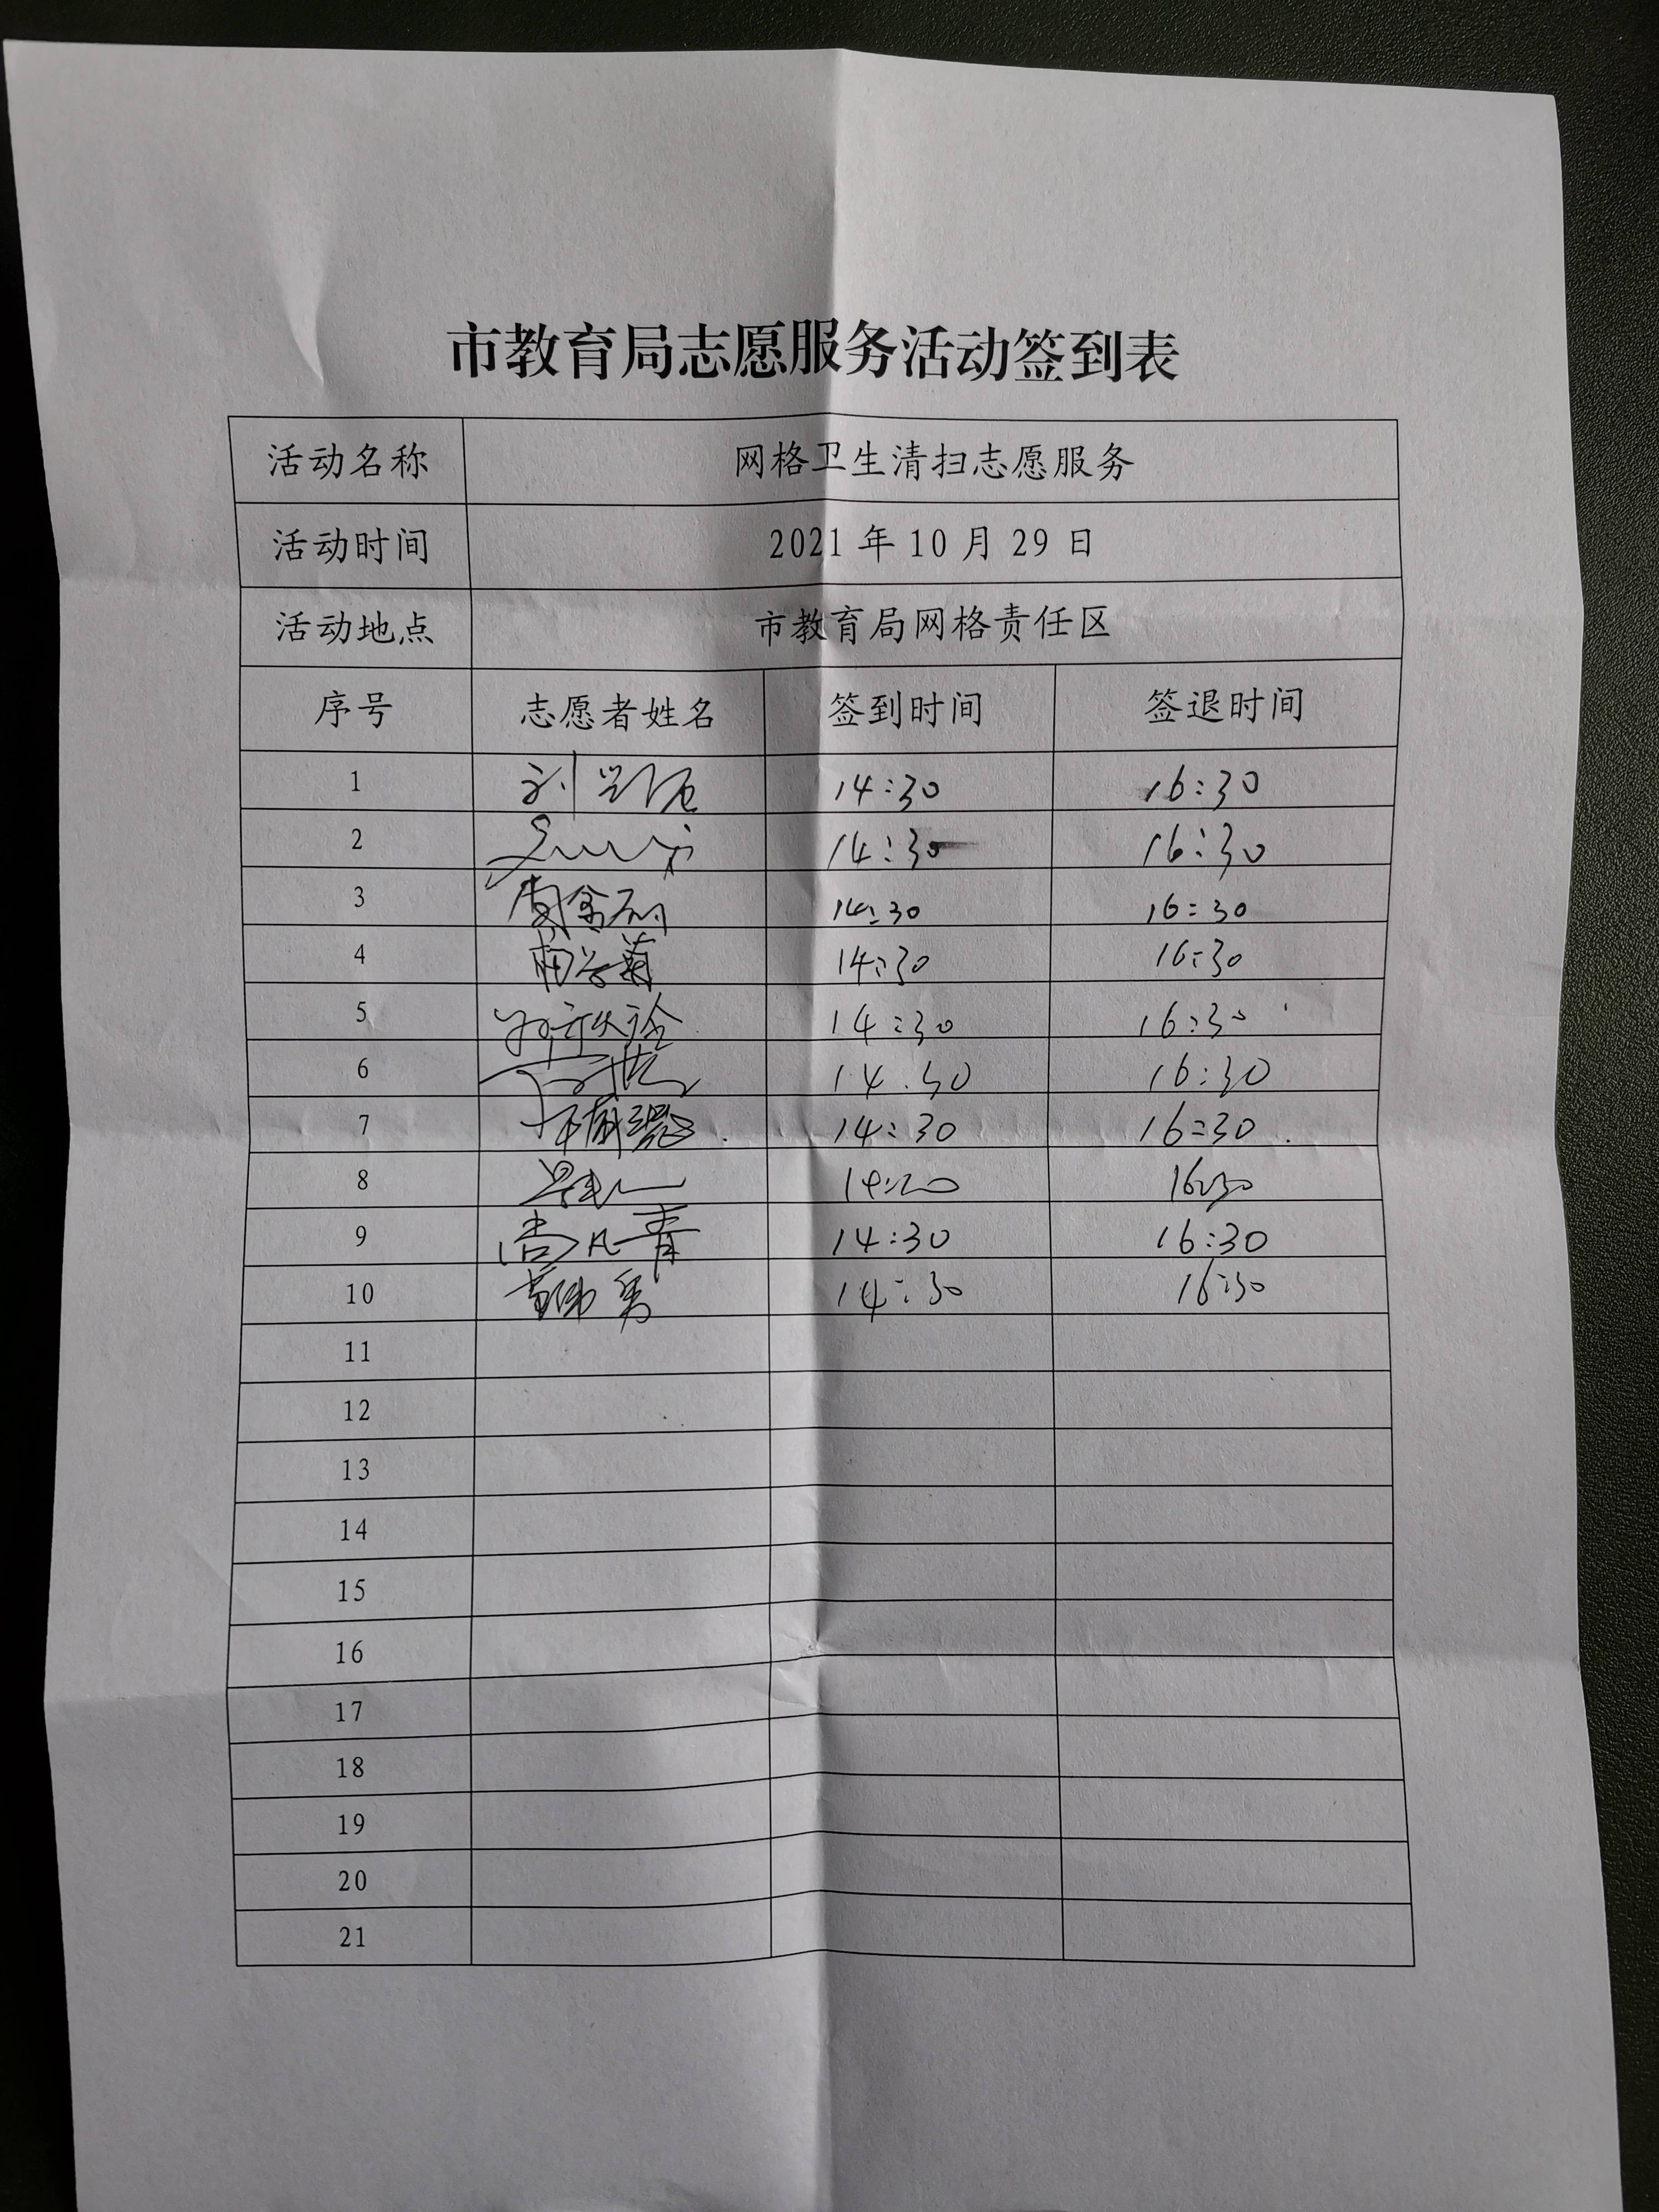 市教育局志愿服务活动签到表
活动名称 网格卫生清扫志愿服务
活动时间 2021 年 10 月 29 日
活动地点 市教育局网格责任区
序号 志愿者姓名 签到时间 签退时间
1 刘 14:30 16:30
2 14:30 16:30
3 14:30 16:30
4 14:30 16:30
5 14:30 16:30
6 14:30 16:30
7 14:30 16:30
8 16:30
9 尚凡青 14:30 16:30
10 14:30 16:30
11
12
13
14
15
16
17
18
19
20
21